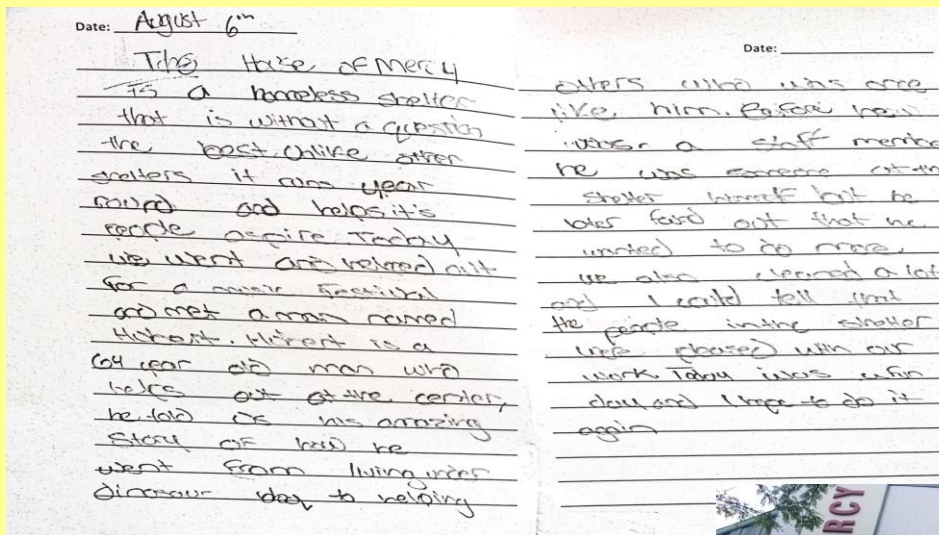 Date: August 6th
The House of Mercy
Is a homeless shelter
that is without a question
the best. Unlike other
shelters it runs year
round and helps it's
people aspire Today
we went and helped out
for a music festival
and met a man named
Hubert. Hubert is a
64 year old man who
helps out at the center,
he told us his amazing
story of how he
went from living under
dinosaur to helping
Date:
others who was once
like him. Before he
was a staff member
he was someone at the
shelter himself but he
later found out that he
wanted to do more.
we also cleaned a lot
and I could tell that
the people in the shelter
were pleased with our
work. Today was a fun
day and I hope to do it
again
RCY